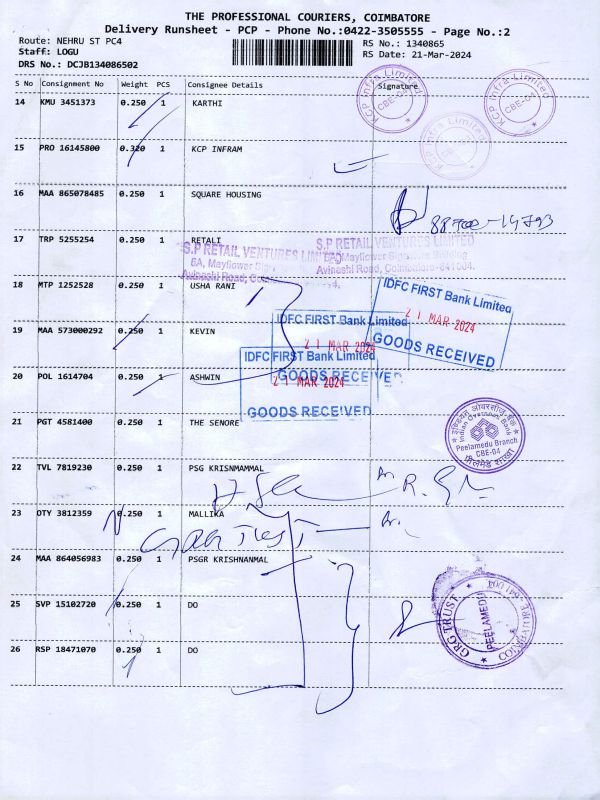 THE PROFESSIONAL COURIERS, COIMBATORE
Delivery Runsheet - PCP - Phone No.:0422-3505555 - Page No.:2
Route: NEHRU ST PC4
RS No.: 1340865
Staff: LOGU
RS Date: 21-Mar-2024
DRS No.: DCJB134086502
S No Consignment No Weight PCS Consignee Details Signature
14 KMU 3451373 0.250 1 KARTHI
KCP Infra Limited
CBE-04
KCP Infra Limited
CBE-04
KCP Infra Limited
15 PRO 16145800 0.320 1 KCP INFRAM
16 MAA 865078485 0.250 1 SQUARE HOUSING
17 TRP 5255254 0.250 1 RETALI
S.P RETAIL VENTURES LIMITED
6A, Mayflower
Avinashi Road, Coimbatore
S.P RETAIL VENTURES LIMITED
6A, Mayflower Signature Building
Avinashi Road, Coimbatore-641004.
18 MTP 1252528 0.250 1 USHA RANI
IDFC FIRST Bank Limited
21 MAR 2024
GOODS RECEIVED
19 MAA 573000292 0.250 1 KEVIN
IDFC FIRST Bank Limited
21 MAR 2024
GOODS RECEIVED
IDFC FIRST Bank Limited
21 MAR 2024
GOODS RECEIVED
20 POL 1614704 0.250 1 ASHWIN
21 PGT 4581400 0.250 1 THE SENORE
इण्डियन ओवरसीज़ बैंक
Indian Overseas Bank
Peelamedu Branch
CBE-04
पीलमेडु शाखा
22 TVL 7819230 0.250 1 PSG KRISNMAMMAL
23 OTY 3812359 0.250 1 MALLIKA
24 MAA 864056983 0.250 1 PSGR KRISHNANMAL
25 SVP 15102720 0.250 1 DO
GRG TRUST
PEELAMEDU
COIMBATORE - 641 004
26 RSP 18471070 0.250 1 DO